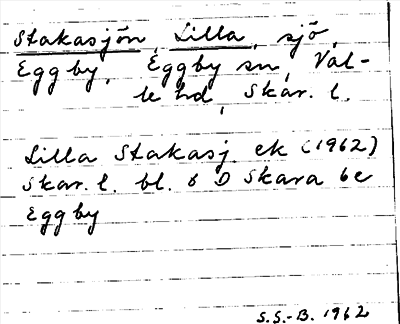 Stakasjön, Lilla, sjö,
Eggby, Eggby sn, Val-
le hd, Skar. l.
Lilla Stakasj. ek (1962)
Skar. l. bl. 8 D Skara 6e
Eggby
S.S.-B. 1962